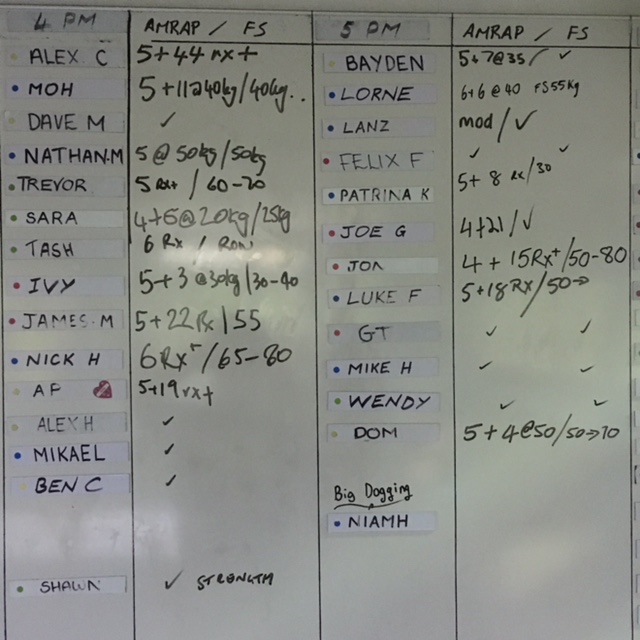 4 PM AMRAP / FS
ALEX C 5+44 rx+
MOH 5+11@40kg/40kg..
DAVE M ✓
NATHAN.M 5@50kg/50kg
TREVOR 5 Rx+ / 60-70
SARA 4+6@20kg/25kg
TASH 6 Rx / ROW
IVY 5+3@30kg/30-40
JAMES.M 5+22Rx/55
NICK H 6Rx+/65-80
AP 5+19rx+
ALEX H ✓
MIKAEL ✓
BEN C ✓
SHAWN ✓ STRENGTH
5 PM AMRAP / FS
BAYDEN 5+7@35/ ✓
LORNE 6+6@40 FS55kg
LANZ mod/✓
FELIX F ✓ ✓
PATRINA K 5+8 Rx/30
JOE G 4+21/✓
JON 4+15Rx+/50-80
LUKE F 5+18Rx/50→
GT ✓ ✓
MIKE H ✓ ✓
WENDY ✓ ✓
DOM 5+4@50/50→70
Big Dogging
NIAMH